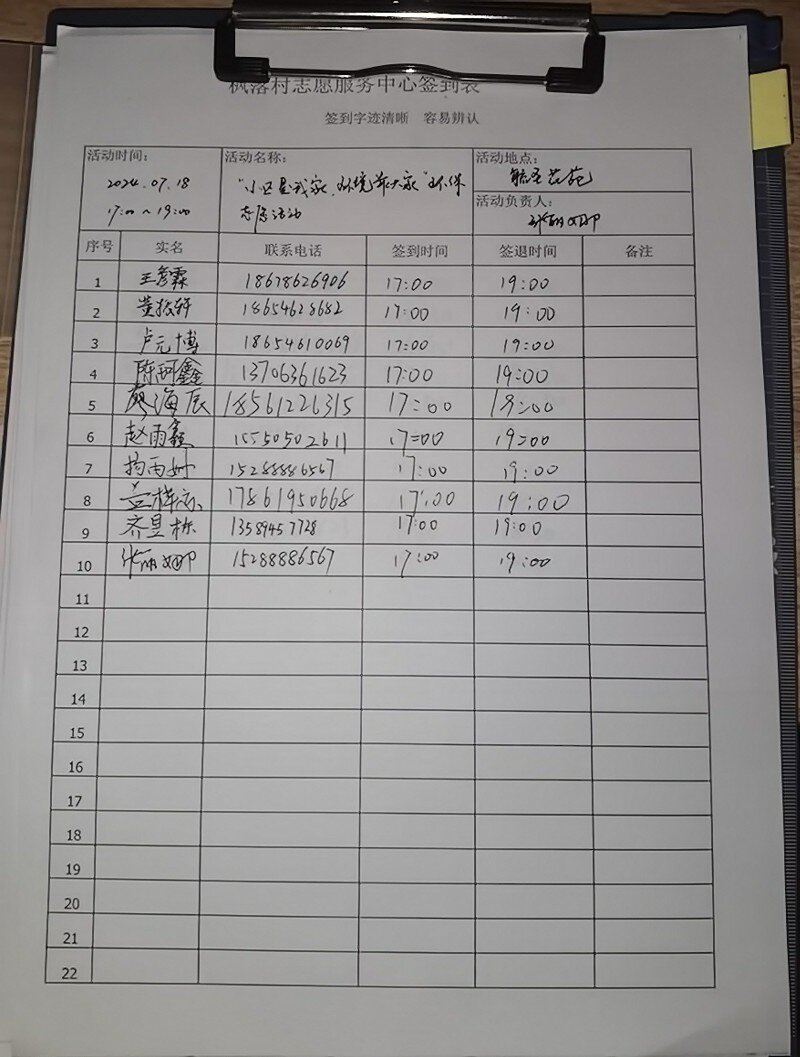 枫落村志愿服务中心签到表
签到字迹清晰 容易辨认
活动时间： 活动名称： 活动地点：
2024.07.18 "小区是我家，环境靠大家"环保 花苑
17:00～19:00 志愿活动 活动负责人：
张丽娜
序号 实名 联系电话 签到时间 签退时间 备注
1 王彦霖 18678626906 17:00 19:00
2 18654628682 17:00 19:00
3 卢元博 18654610069 17:00 19:00
4 陈珂鑫 13706361623 17:00 19:00
5 海辰 18561226315 17:00 19:00
6 赵雨鑫 15550502611 17:00 19:00
7 15288886567 17:00 19:00
8 17861950668 17:00 19:00
9 齐昱栋 13589457728 17:00 19:00
10 张丽娜 15288886567 17:00 19:00
11
12
13
14
15
16
17
18
19
20
21
22